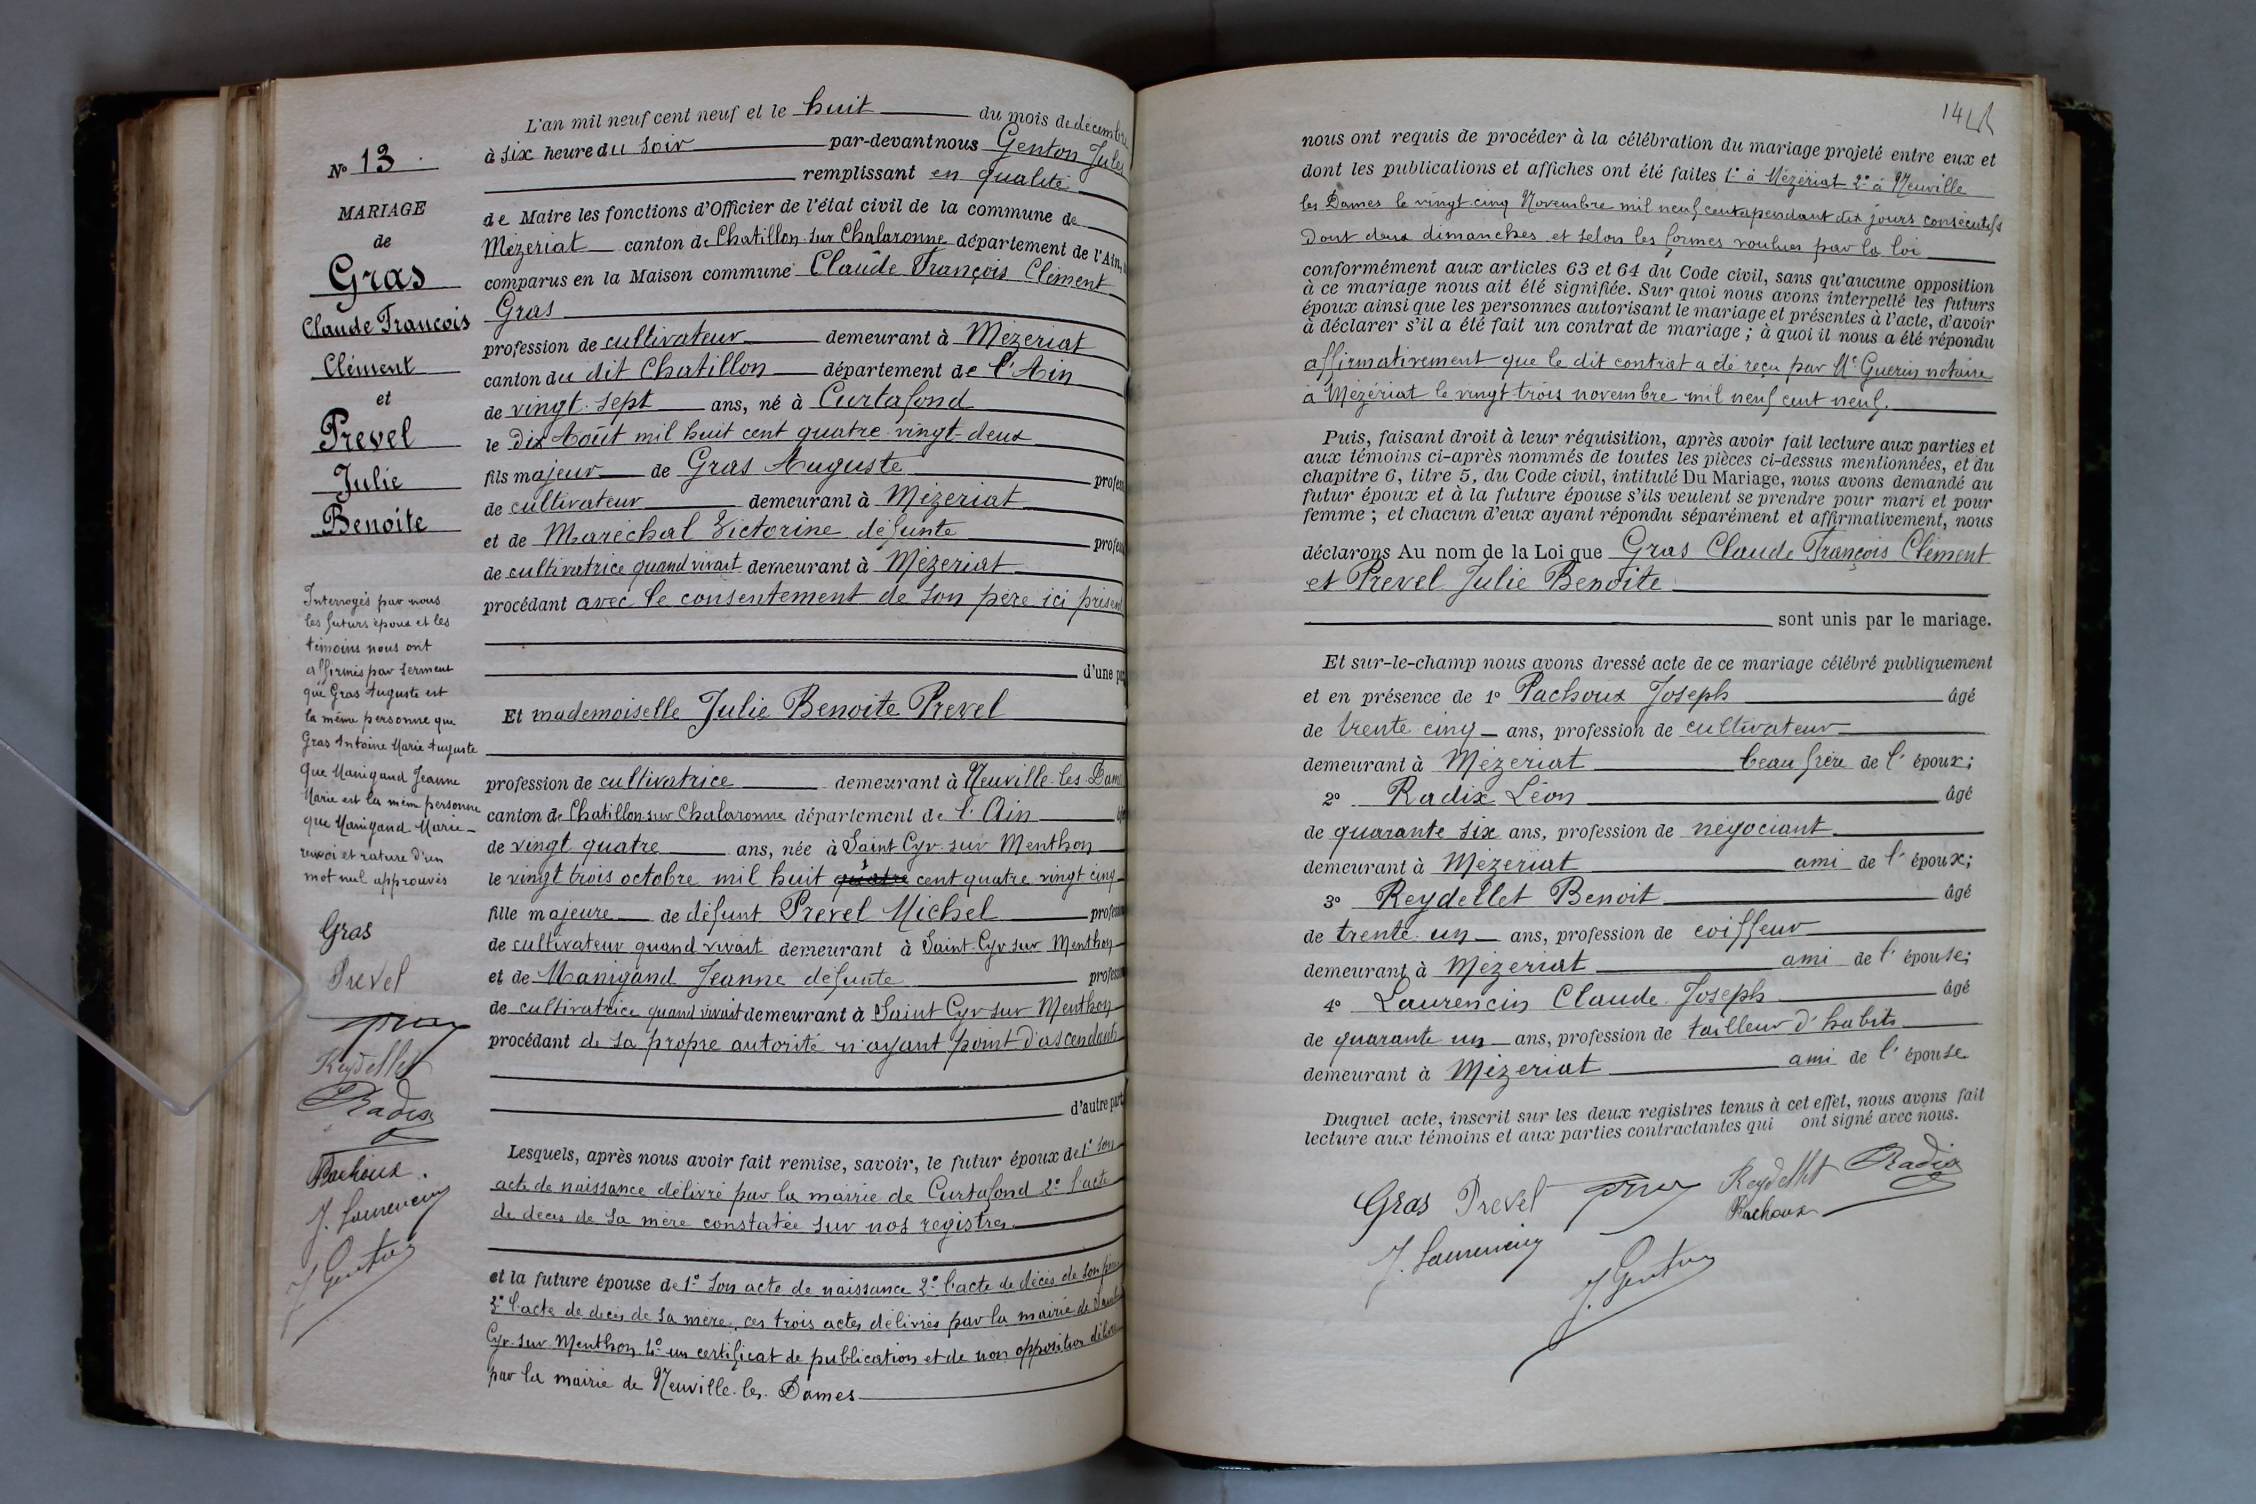 L'an mil neuf cent neuf et le huit du mois de décembre
à six heure du soir par-devant nous Genton Jules
remplissant en qualité
de Maire les fonctions d'Officier de l'état civil de la commune de
Mézériat canton de Chatillon sur Chalaronne département de l'Ain,
comparus en la Maison commune Claude François Clément
Gras
profession de cultivateur demeurant à Mézériat
canton du dit Chatillon département de l'Ain
de vingt-sept ans, né à Curtafond
le Dix Août mil huit cent quatre-vingt-deux
fils majeur de Gras Auguste profess
de cultivateur demeurant à Mézériat
et de Maréchal Victorine défunte profess
de cultivatrice quand vivait demeurant à Mézériat
procédant avec le consentement de son père ici présent
d'une part
Et mademoiselle Julie Benoite Prevel
profession de cultivatrice demeurant à Neuville-les-Dames
canton de Chatillon-sur-Chalaronne département de l'Ain
de vingt quatre ans, née à Saint Cyr-sur Menthon
le vingt trois octobre mil huit quatre cent quatre vingt cinq
fille majeure de défunt Prevel Michel profession
de cultivateur quand vivait demeurant à Saint-Cyr sur Menthon
et de Manigand Jeanne défunte profession
de cultivatrice quand vivait demeurant à Saint Cyr sur Menthon
procédant de sa propre autorité n'ayant point d'ascendants
d'autre part
Lesquels, après nous avoir fait remise, savoir, le futur époux de 1° son
acte de naissance délivré par la mairie de Curtafond 2° l'acte
de décès de sa mère constatée sur nos registres
et la future épouse de 1° son acte de naissance 2° l'acte de décès de son père
3° l'acte de décès de sa mère, ces trois actes délivrés par la mairie de Saint
Cyr-sur Menthon 4° un certificat de publication et de non opposition délivré
par la mairie de Neuville-les-Dames
N° 13
MARIAGE
de
Gras
Claude François
Clément
et
Prevel
Julie
Benoite
Interrogés par nous
les futurs époux et les
témoins nous ont
affirmés par serment
que Gras Auguste est
la même personne que
Gras Antoine Marie Auguste
que Manigand Jeanne
Marie est la même personne
que Manigand Marie
renvoi et rature d'un
mot nul approuvés
Gras
Prevel
Reydellet
Radix
Pachoux
J. Laurencin
J. Genton
144
nous ont requis de procéder à la célébration du mariage projeté entre eux et
dont les publications et affiches ont été faites 1° à Mézériat 2° à Neuville
les Dames le vingt-cinq Novembre mil neuf cent pendant dix jours consécutifs
dont deux dimanches et selon les formes voulues par la loi
conformément aux articles 63 et 64 du Code civil, sans qu'aucune opposition
à ce mariage nous ait été signifiée. Sur quoi nous avons interpellé les futurs
époux ainsi que les personnes autorisant le mariage et présentes à l'acte, d'avoir
à déclarer s'il a été fait un contrat de mariage ; à quoi il nous a été répondu
affirmativement que le dit contrat a été reçu par Me Guerin notaire
à Mézériat le vingt-trois novembre mil neuf cent neuf.
Puis, faisant droit à leur réquisition, après avoir fait lecture aux parties et
aux témoins ci-après nommés de toutes les pièces ci-dessus mentionnées, et du
chapitre 6, titre 5, du Code civil, intitulé Du Mariage, nous avons demandé au
futur époux et à la future épouse s'ils veulent se prendre pour mari et pour
femme ; et chacun d'eux ayant répondu séparément et affirmativement, nous
déclarons Au nom de la Loi que Gras Claude François Clément
et Prevel Julie Benoite
sont unis par le mariage.
Et sur-le-champ nous avons dressé acte de ce mariage célébré publiquement
et en présence de 1° Pachoux Joseph âgé
de trente cinq ans, profession de cultivateur
demeurant à Mézériat beau frère de l'époux;
2° Radix Léon âgé
de quarante six ans, profession de négociant
demeurant à Mézériat ami de l'époux;
3° Reydellet Benoit âgé
de trente-un ans, profession de coiffeur
demeurant à Mézériat ami de l'épouse;
4° Laurencin Claude Joseph âgé
de quarante un ans, profession de tailleur d'habits
demeurant à Mézériat ami de l'épouse
Duquel acte, inscrit sur les deux registres tenus à cet effet, nous avons fait
lecture aux témoins et aux parties contractantes qui ont signé avec nous.
Gras Prevel Reydellet Radix
Pachoux
J. Laurencin
J. Genton